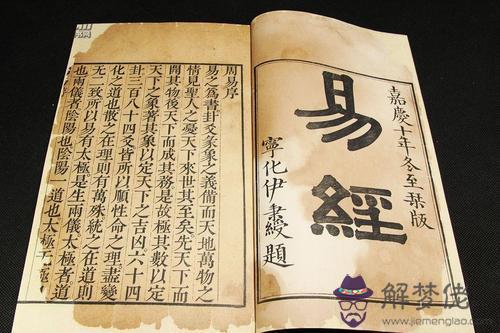 嘉慶十年冬至栞版
易經
寧化伊秉綬題
周易序
易之爲書卦爻彖象之義備而天地萬物之
情見聖人之憂天下來世其至矣先天下而
開其物後天下而成其務是故極其數以定
天下之象著其象以定天下之吉凶六十四
卦三百八十四爻皆所以順性命之理盡變
化之道也散之在理則有萬殊統之在道則
无二致所以易有太極是生兩儀太極者道
也兩儀者陰陽也陰陽一道也太極无極
解梦佬
http://www.jiemenglao.com/